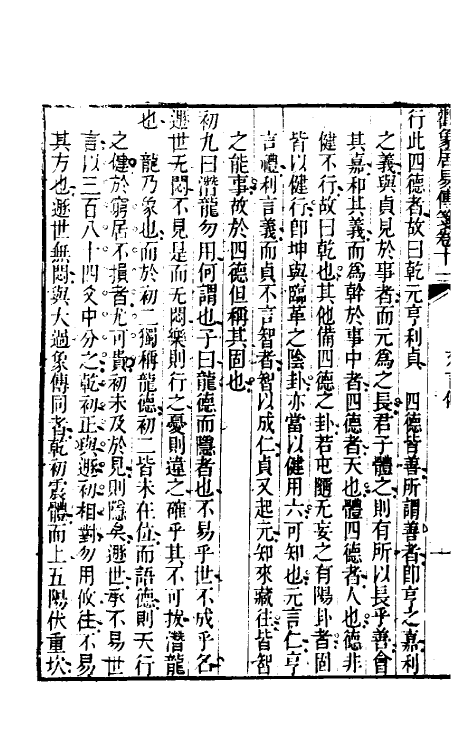 觀象居易傳箋卷十二
文言傳
行此四德者故曰乾元亨利貞　四德皆善所謂善者卽亨之嘉利
之義與貞見於事者而元爲之長君子體之則有所以長乎善會
其嘉和其義而爲幹於事中者四德者天也體四德者人也德非
健不行故曰乾也其他備四德之卦若屯隨无妄之有陽卦者固
皆以健行卽坤與臨革之陰卦亦當以健用六可知也元言仁亨
言禮利言義而貞不言智者智以成仁貞又起元知來藏往皆智
之能事故於四德但稱其固也
初九曰潛龍勿用何謂也子曰龍德而隱者也不易乎世不成乎名
遯世无悶不見是而无悶樂則行之憂則違之確乎其不可拔潛龍
也　龍乃象也而於初二獨稱龍德初二皆未在位而語德則天行
之健於窮居不損者尤可貴初未及於見則隱矣遯世承不易世
言以三百八十四爻中分之乾初正與遯初相對勿用攸往不易
其方也遯世無悶與大過象傳同者乾初震體而上五陽伏重坎